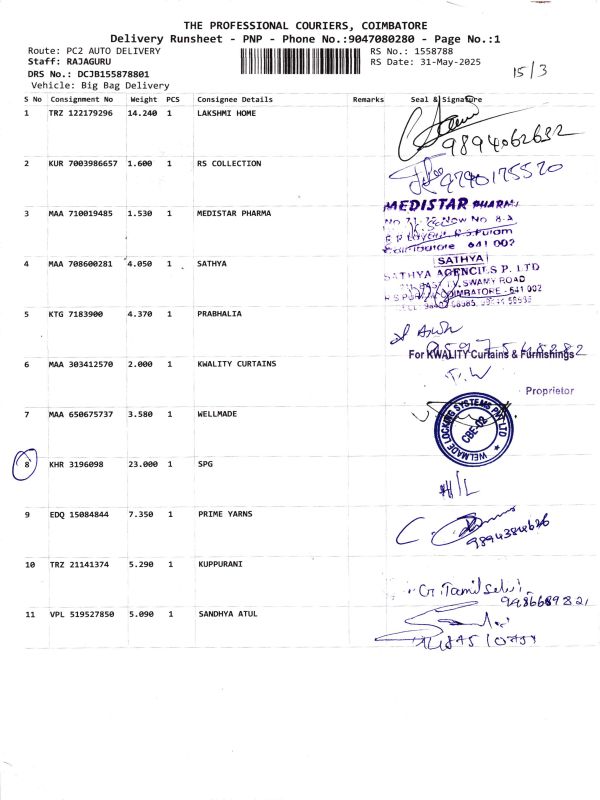 THE PROFESSIONAL COURIERS, COIMBATORE
Delivery Runsheet - PNP - Phone No.:9047080280 - Page No.:1
Route: PC2 AUTO DELIVERY
RS No.: 1558788
Staff: RAJAGURU
RS Date: 31-May-2025
15/3
DRS No.: DCJB155878801
Vehicle: Big Bag Delivery
S No Consignment No Weight PCS Consignee Details Remarks Seal & Signature
1 TRZ 122179296 14.240 1 LAKSHMI HOME
9894062632
2 KUR 7003986657 1.600 1 RS COLLECTION
9790175520
3 MAA 710019485 1.530 1 MEDISTAR PHARMA
MEDISTAR PHARMA
641 002
4 MAA 708600281 4.050 1 SATHYA
SATHYA
SATHYA AGENCIES P. LTD
SWAMY ROAD
COIMBATORE - 641 002
5 KTG 7183900 4.370 1 PRABHALIA
For KWALITY Curtains & Furnishings
6 MAA 303412570 2.000 1 KWALITY CURTAINS
Proprietor
7 MAA 650675737 3.580 1 WELLMADE
WELMADE LOCKING SYSTEMS PVT LTD
CBE-02
8 KHR 3196098 23.000 1 SPG
H/L
9 EDQ 15084844 7.350 1 PRIME YARNS
10 TRZ 21141374 5.290 1 KUPPURANI
G. Tamilselvi
11 VPL 519527850 5.090 1 SANDHYA ATUL